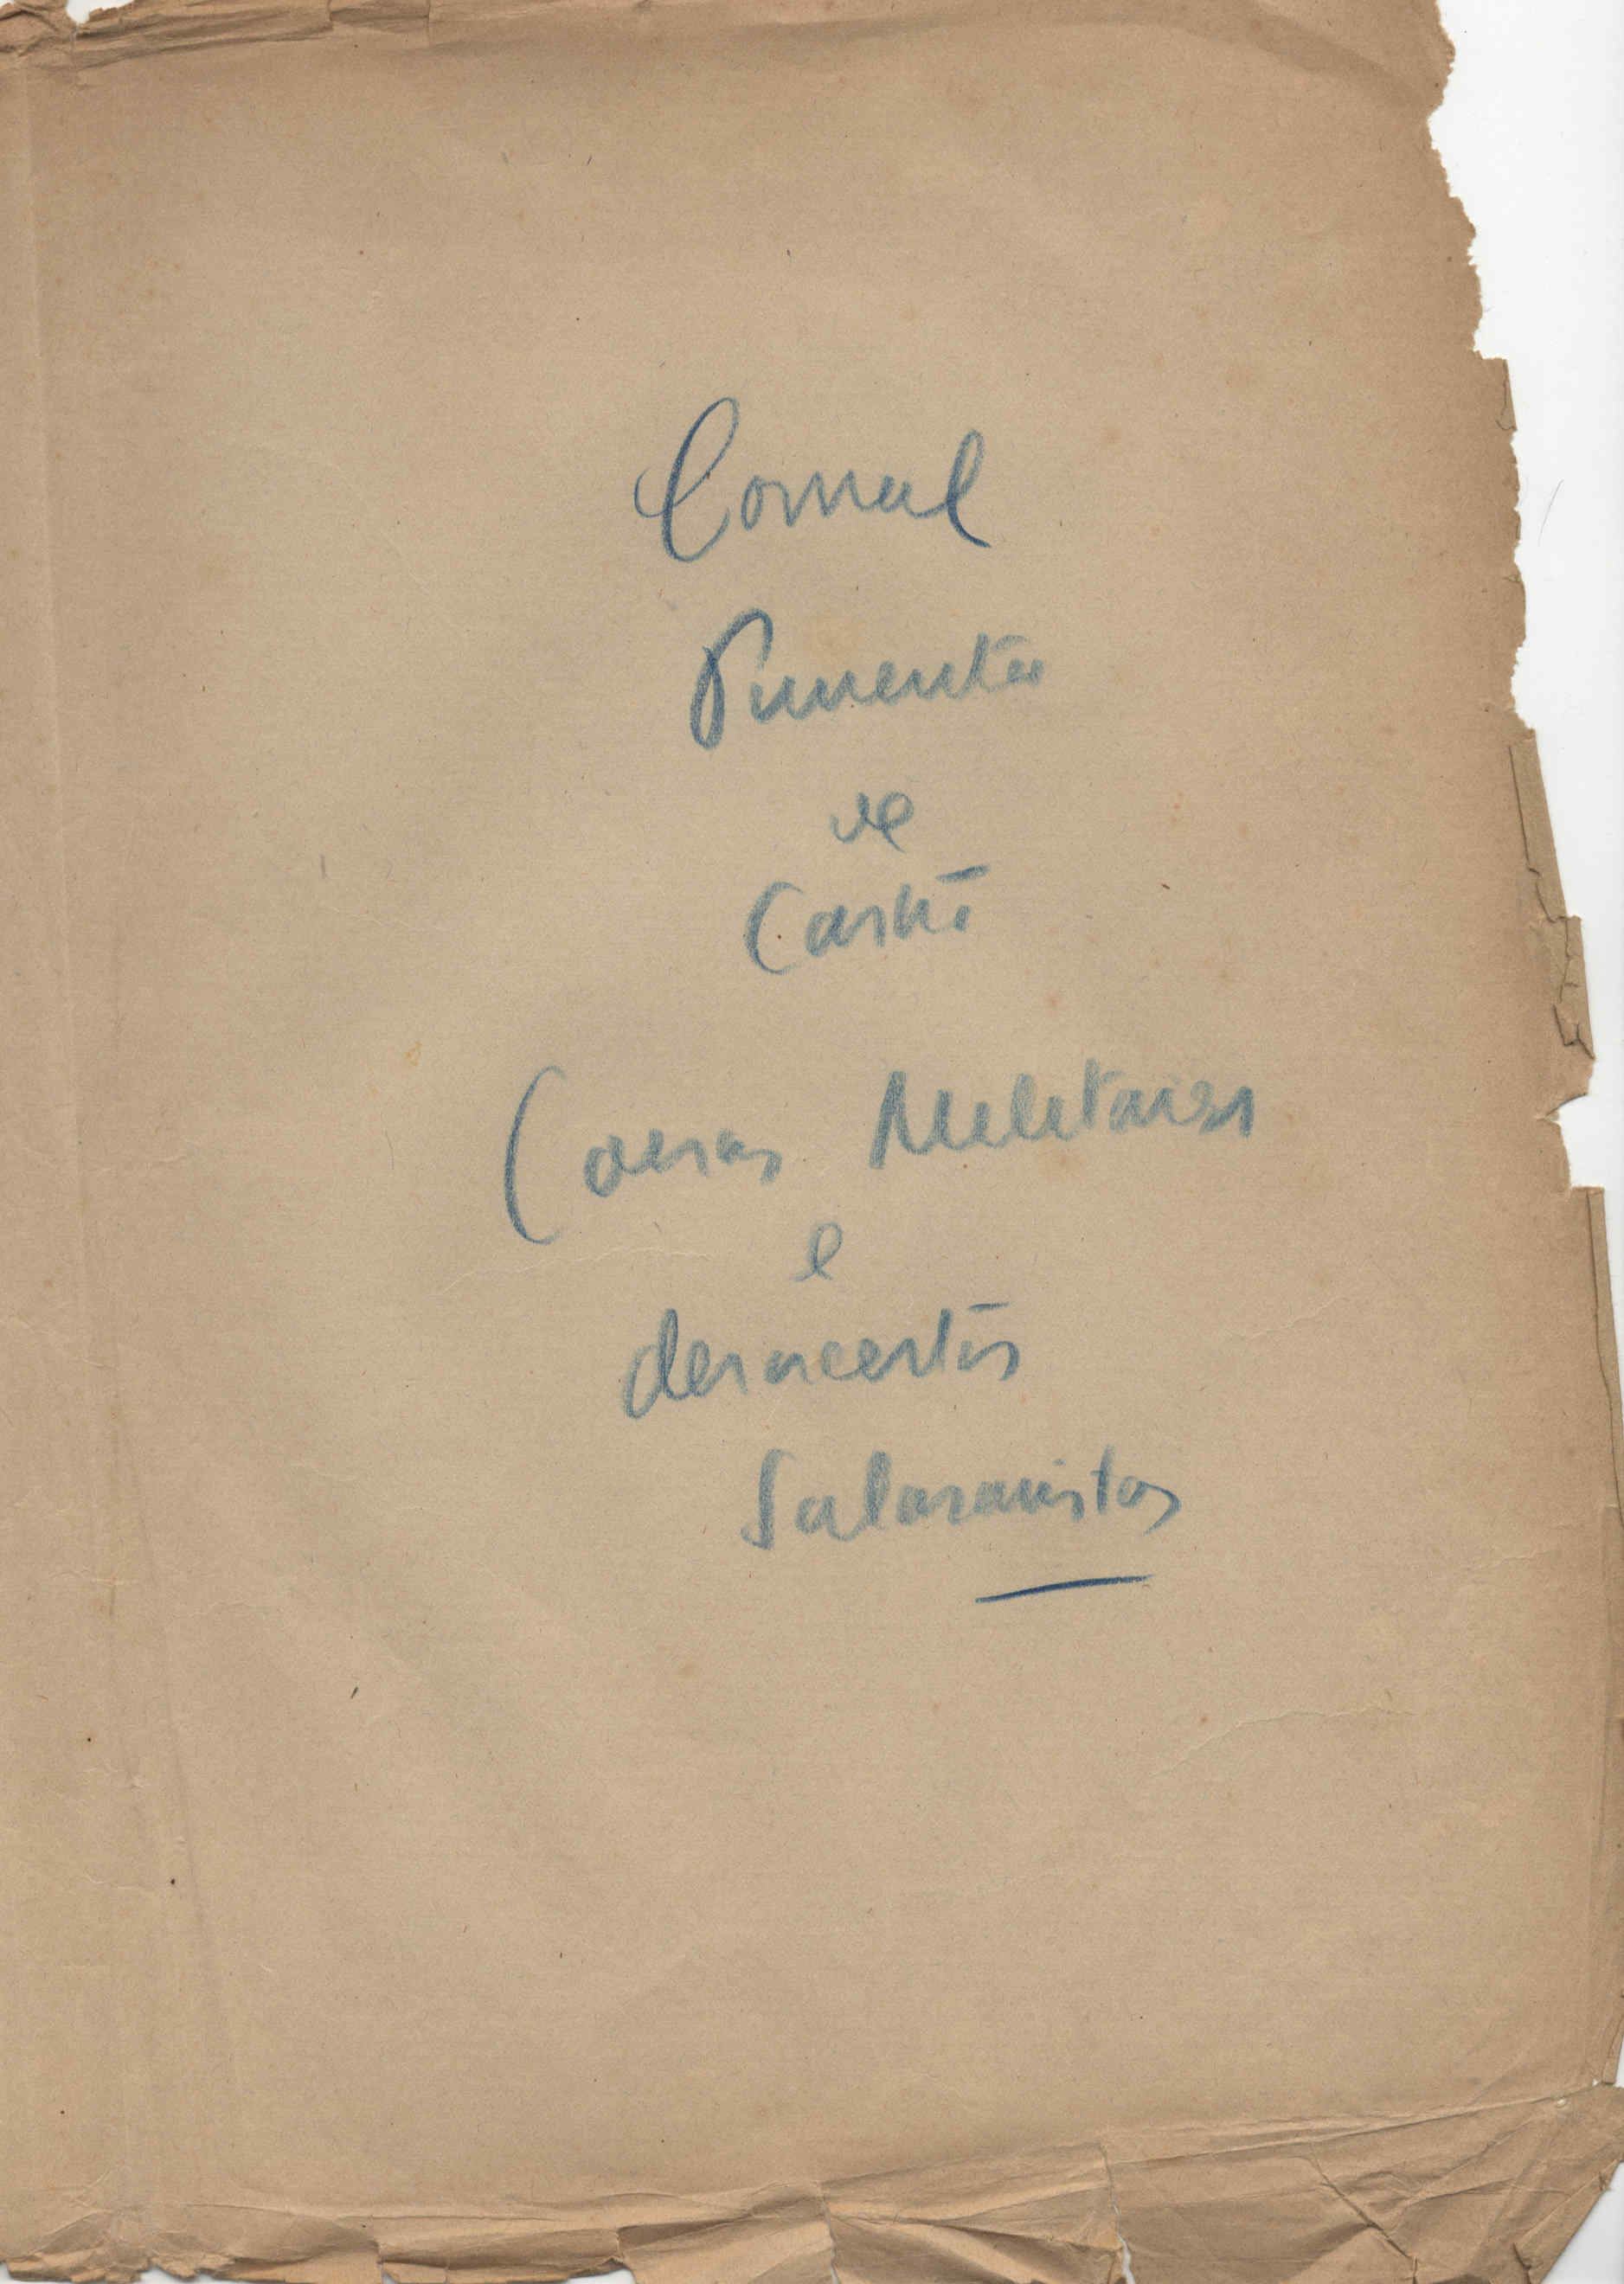 Cornel
Pimenta
de
Castro
Coisas Militares
e
desacertos
Salazaristas